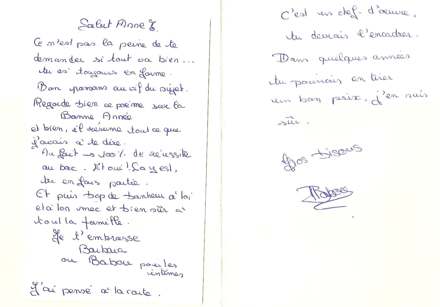 Salut Anne
Ce n'est pas la peine de te
demander si tout va bien...
tu es toujours en forme.
Bon passons au vif du sujet.
Regarde bien ce poème sur la
Bonne Année
et bien, il résume tout ce que
j'avais à te dire.
Au fait → 100% de réussite
au bac. Et oui! Ça y est,
tu en fais partie.
Et puis trop de bonheur à toi
et à ton mec et bien sûr à
toute la famille.
Je t'embrasse
Barbara
ou Babou pour les
intimes
J'ai pensé à la carte.
C'est un chef-d'œuvre,
tu devrais l'encadrer.
Dans quelques années
tu pourrais en tirer
un bon prix, j'en suis
sûr.
Gros bisous